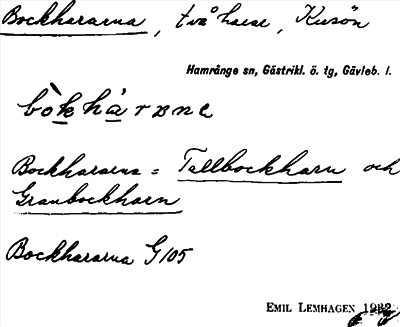 Bockhararna, två harar, Kusön
Hamrånge sn, Gästrikl. ö. tg, Gävleb. l.
bòkhàrɴnɐ
Bockhararna = Tallbockharn och
Granbockharn
Bockhararna G 105
EMIL LEMHAGEN 1932